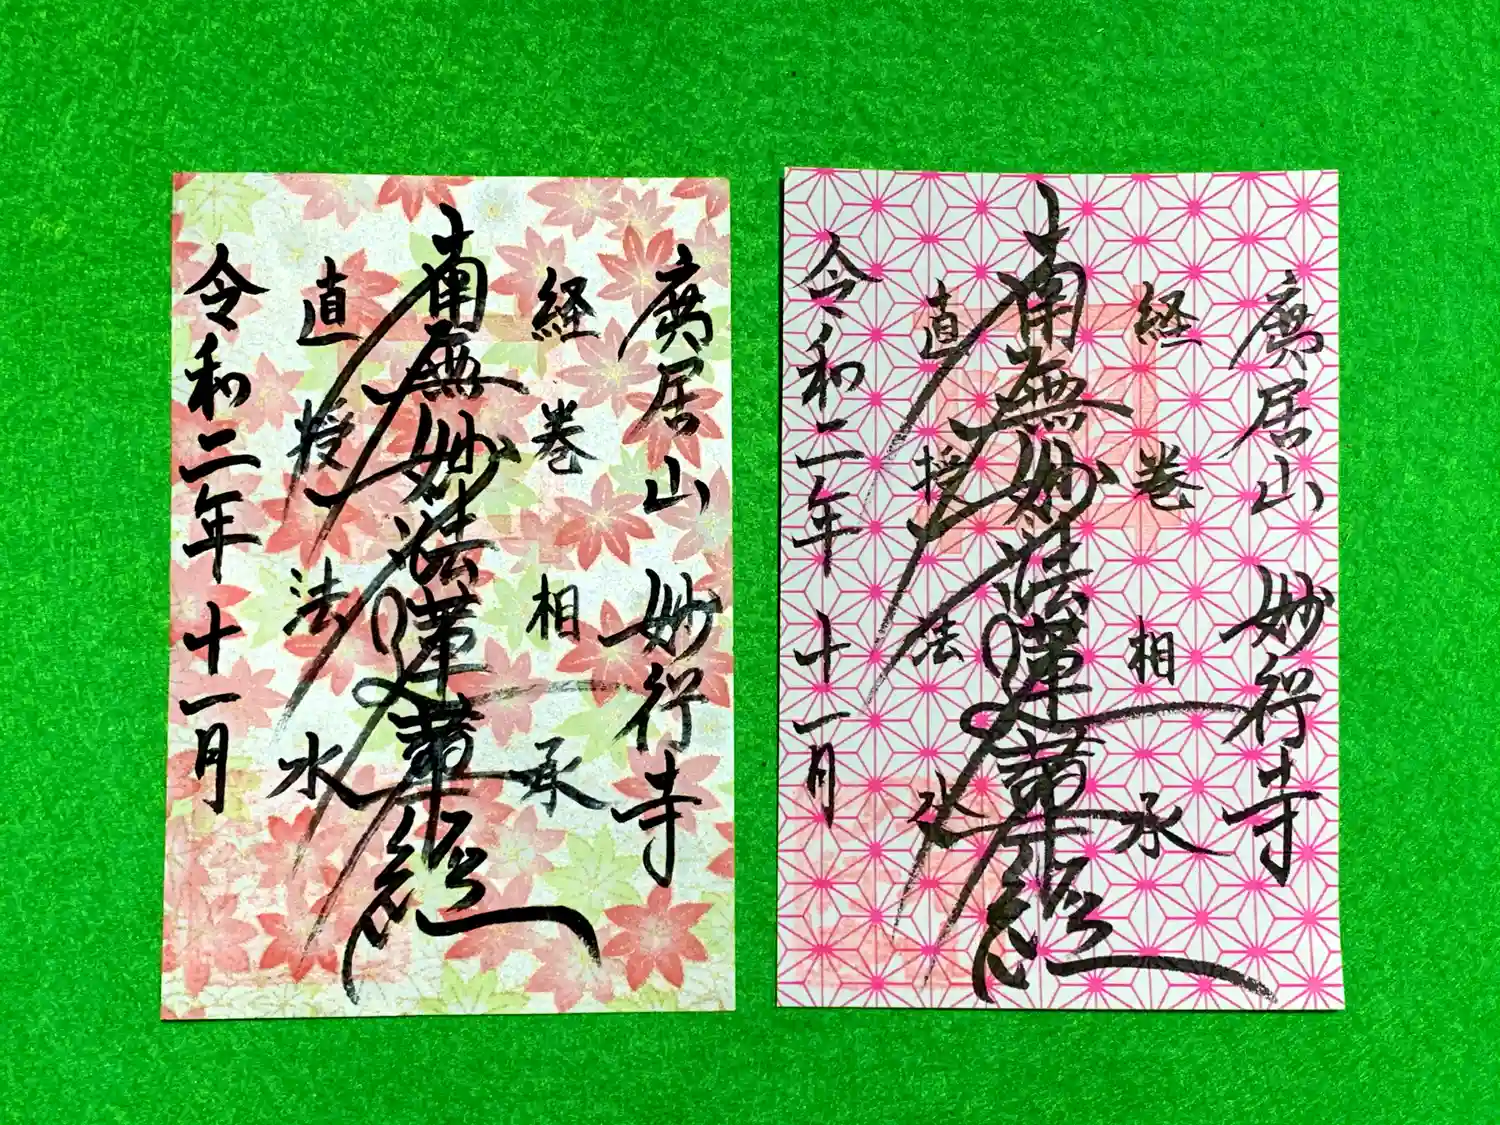 廣居山 妙行寺
経巻相承
南無妙法蓮華経
直授法水
令和二年十一月
廣居山 妙行寺
経巻相承
南無妙法蓮華経
直授法水
令和二年十一月